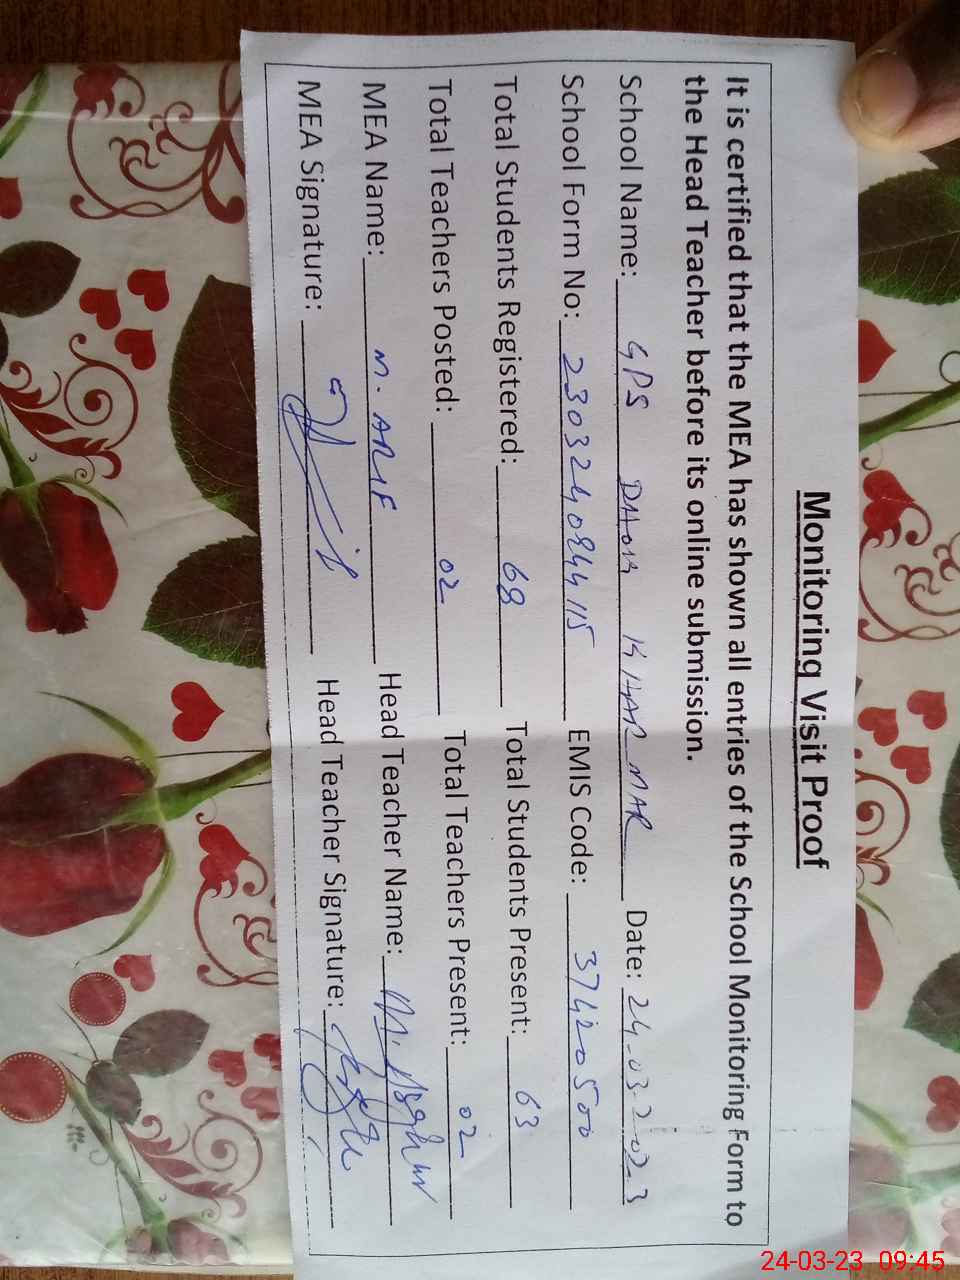 Monitoring Visit Proof
It is certified that the MEA has shown all entries of the School Monitoring Form to
the Head Teacher before its online submission.
School Name: GPS DAOHA KHAR MAR Date: 24-03-2023
School Form No: 2303240844115 EMIS Code: 37420500
Total Students Registered: 68 Total Students Present: 63
Total Teachers Posted: 02 Total Teachers Present: 02
MEA Name: M. ARIF Head Teacher Name: M. Asghar
MEA Signature: Head Teacher Signature:
24-03-23 09:45